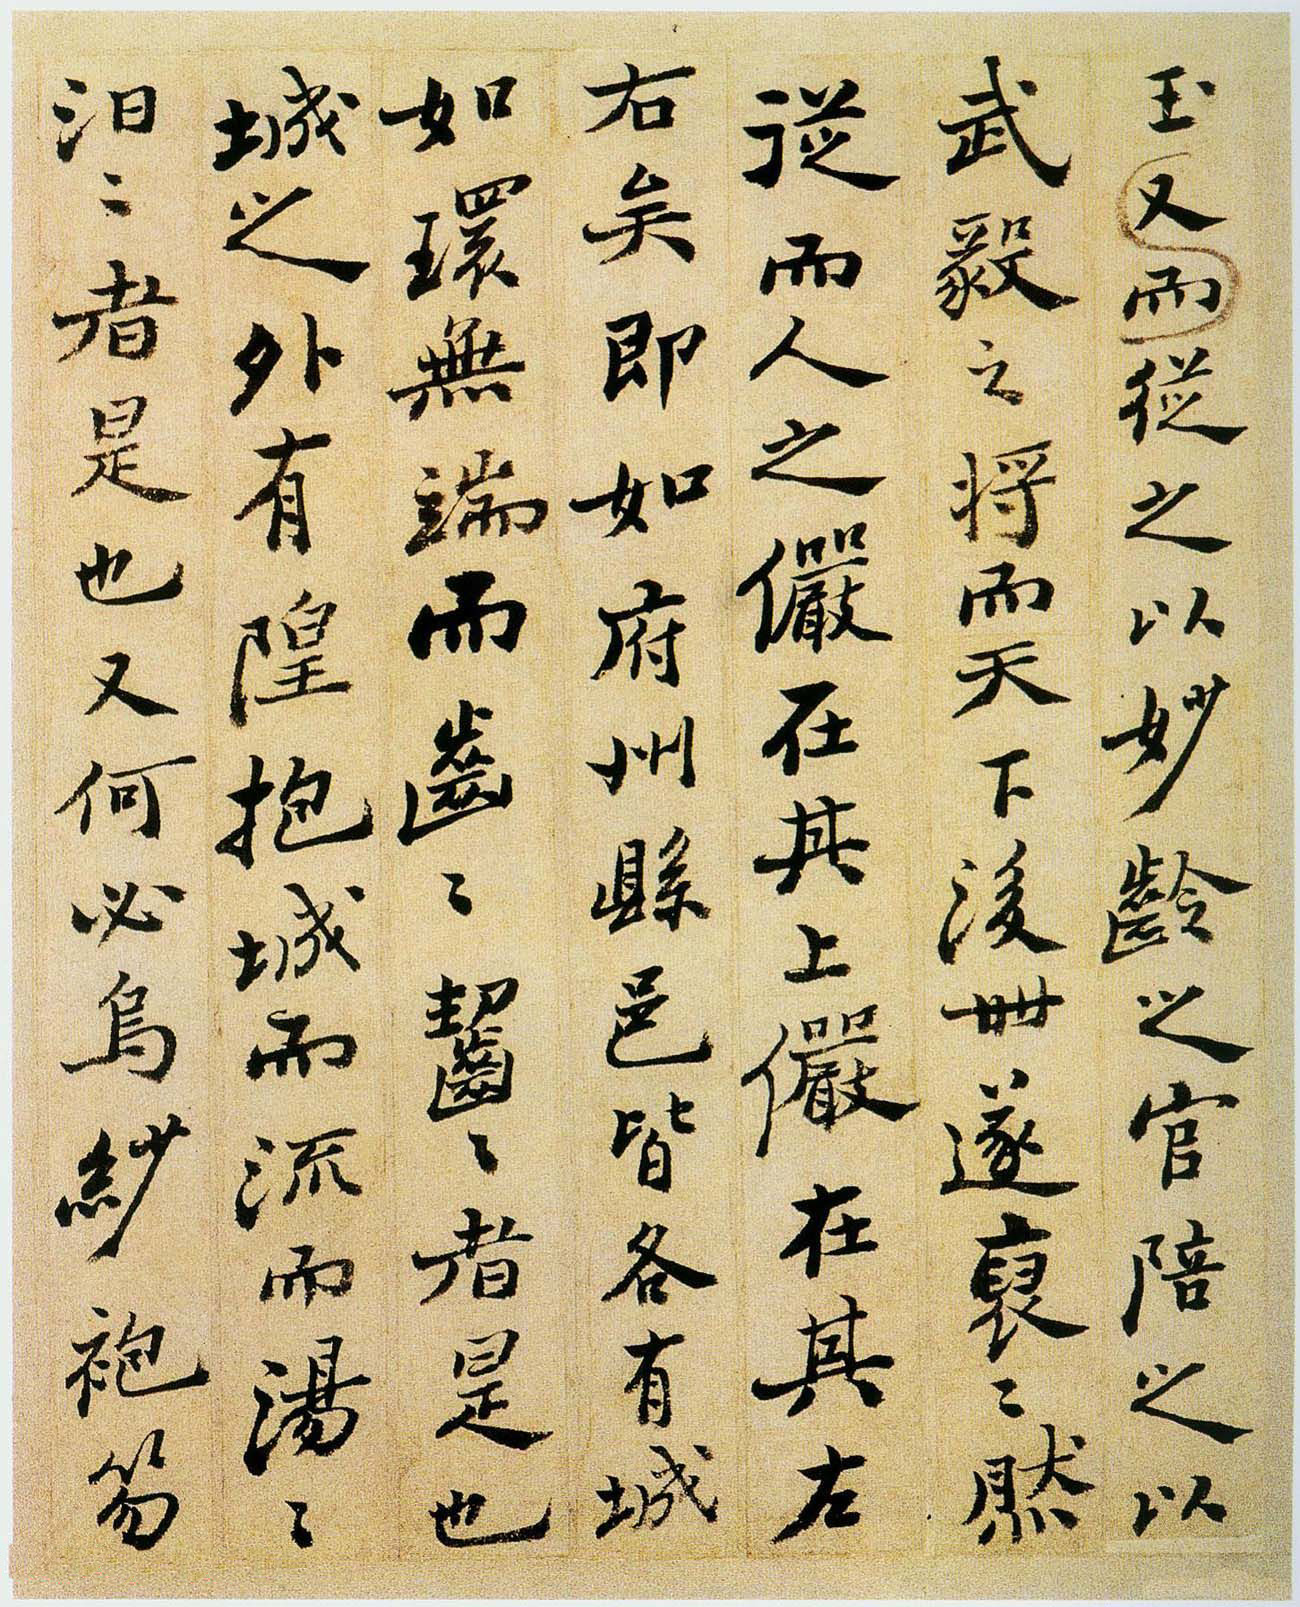 玉又而從之以妙齡之官陪之以
武毅之将而天下後世遂裒〻然
從而人之儼在其上儼在其左
右矣即如府州縣邑皆各有城
如環無端而齒〻齧〻者是也
城之外有隍抱城而流而湯〻
汨〻者是也又何必烏紗袍笏